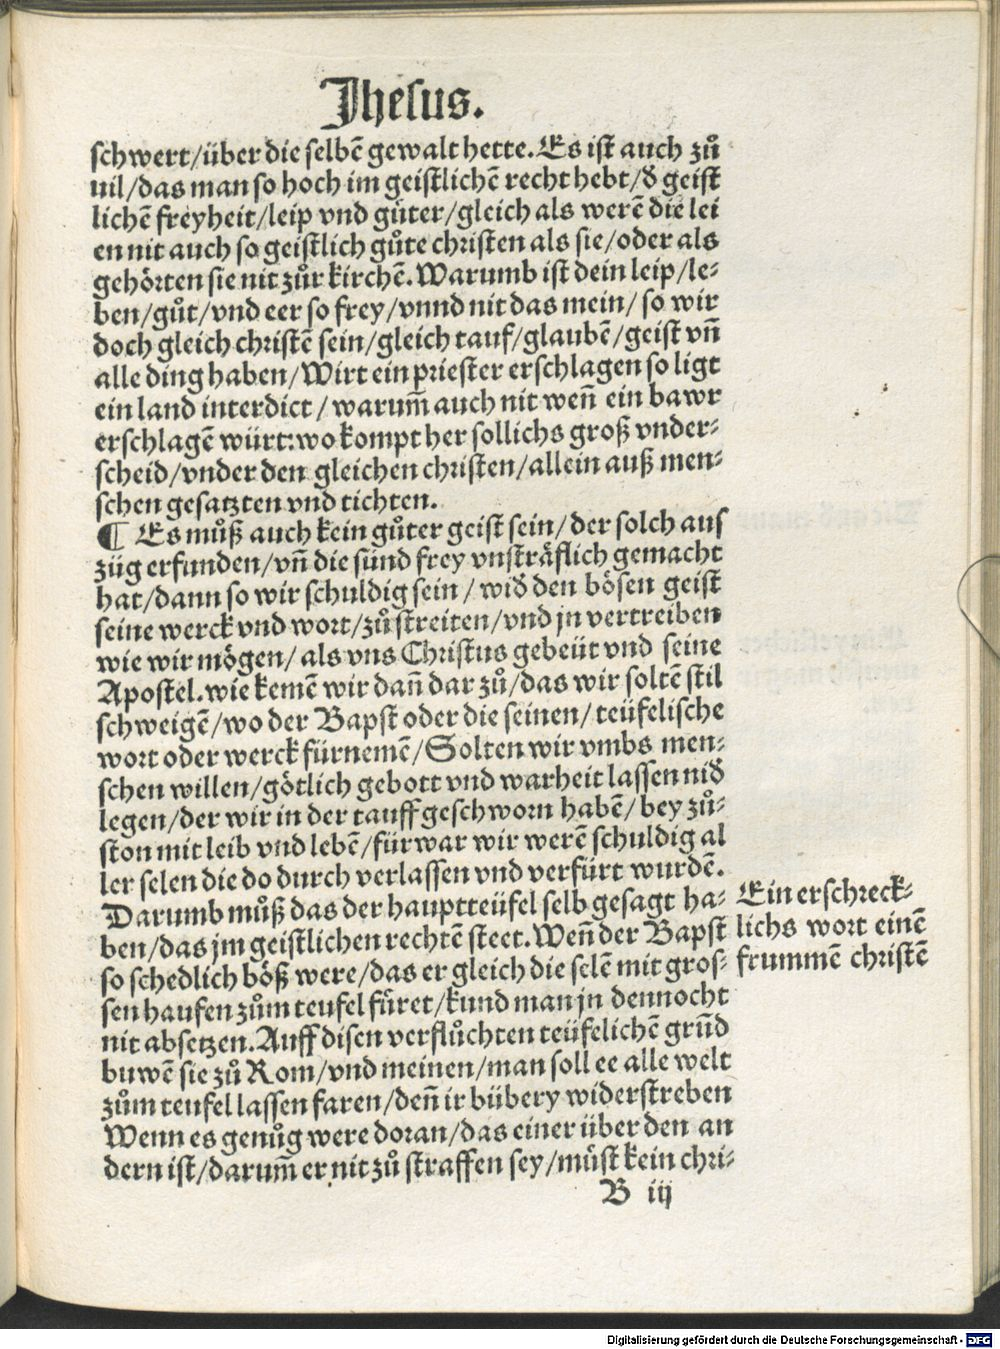 Jhesus.
schwert/über die selbē gewalt hette. Es ist auch zů
uil/das man so hoch im geistlichē recht hebt/đ geist
lichē freyheit/leip vnd güter/gleich als werē die lei
en nit auch so geistlich gůte christen als sie/oder als
gehörten sie nit zůr kirchē. Warumb ist dein leip/le-
ben/gůt/vnd eer so frey/vnnd nit das mein/ so wir
doch gleich christē sein/gleich tauf/glaubē/geist vn̄
alle ding haben/Wirt ein priester erschlagen so ligt
ein land interdict / warum̄ auch nit wen̄ ein bawr
erschlagē würt: wo kompt her sollichs groß vnder-
scheid/vnder den gleichen christen/allein auß men-
schen gesatzten vnd tichten.
¶ Es můß auch kein gůter geist sein/der solch auf
züg erfunden/vn̄ die sünd frey vnsträflich gemacht
hat/dann so wir schuldig sein / wiđ den bösen geist
seine werck vnd wort/zů streiten/vnd jn vertreiben
wie wir mögen/ als vns Christus gebeüt vnd seine
Apostel. wie kemē wir dan̄ dar zů/das wir soltē stil
schweigē/wo der Bapst oder die seinen/ teüfelische
wort oder werck fürnemē/Solten wir vmbs men-
schen willen/götlich gebott vnd warheit lassen niđ
legen/der wir in der tauff geschworn habē/bey zů-
ston mit leib vnd lebē/fürwar wir werē schuldig al
ler selen die do durch verlassen vnd verfürt wurdē.
Darumb můß das der hauptteüfel selb gesagt ha-
ben/das jm geistlichen rechtē steet. Wen̄ der Bapst
so schedlich böß were/das er gleich die selē mit gros-
sen haufen zům teufel füret/kund man jn dennocht
nit absetzen. Auff disen verflůchten teüfelichē grūd
buwē sie zů Rom/vnd meinen/man soll ee alle welt
zům teufel lassen faren/den̄ ir bübery widerstreben
Wenn es genůg were doran/das einer über den an
dern ist/darum̄ er nit zů straffen sey/müst kein chri-
B iij
Ein erschreck-
lichs wort einē
frummē christē
Digitalisierung gefördert durch die Deutsche Forschungsgemeinschaft - DFG